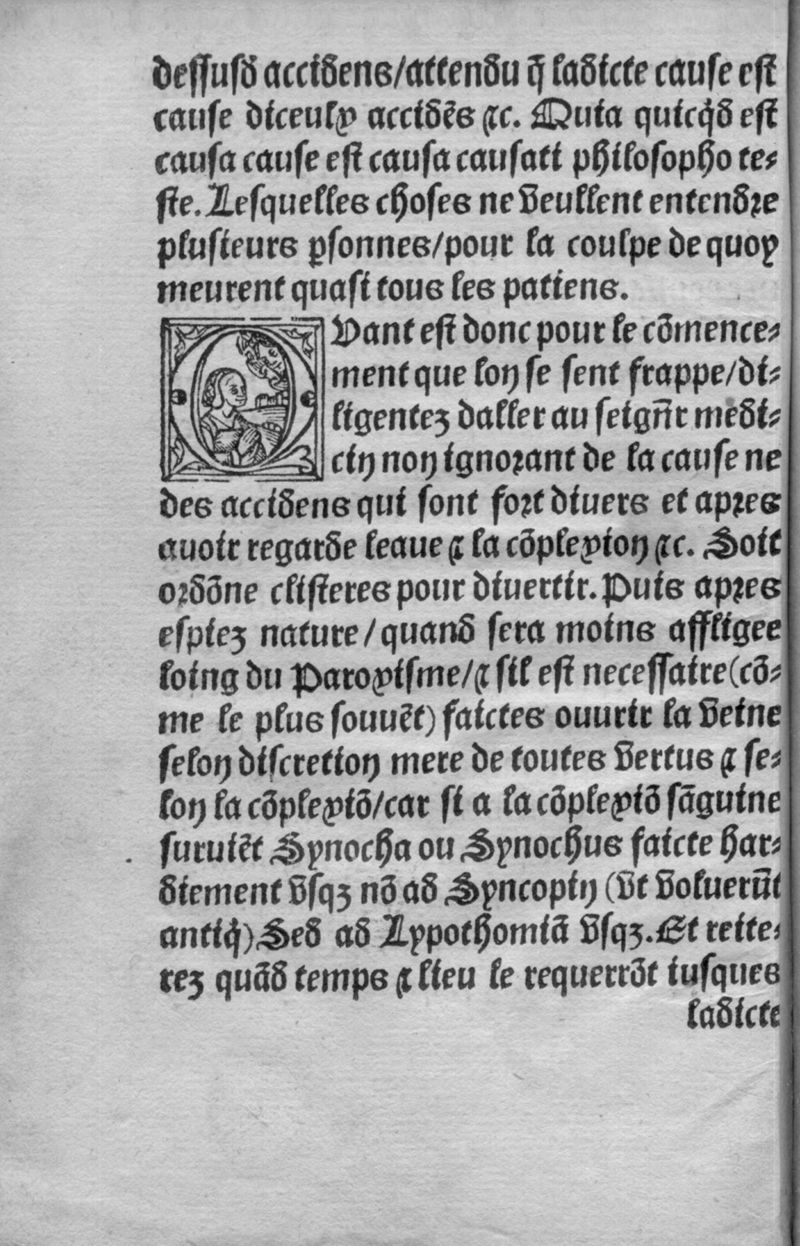 dessusd accidens/attendu q̃ ladicte cause est
cause diceulx accidẽs ⁊c. Quia quicq̇d est
causa cause est causa causati philosopho te⸗
ste. Lesquelles choses ne veullent entendꝛe
plusieurs ꝑsonnes/pour la coulpe de quoy
meurent quasi tous les patiens.
QVant est donc pour le cõmence⸗
ment que lon se sent frappe/di⸗
ligentez daller au seign̄r medi⸗
cin non ignoꝛant de la cause ne
des accidens qui sont foꝛt diuers et apꝛes
auoir regarde leaue ⁊ la cõplexion ⁊c. Soit
oꝛdõne clisteres pour diuertir. Puis apꝛes
espiez nature/quand sera moins affligee
loing du Paroxisme/⁊ sil est necessaire (cõ⸗
me le plus souuẽt) faictes ouurir la veine
selon discretion mere de toutes vertus ⁊ se⸗
lon la cõplexiõ/car si a la cõplexiõ sãguine
suruiẽt Synocha ou Synochus faicte har⸗
diement vsqꝫ nõ ad Syncopin (vt voluerũt
antiq̇) Sed ad Lypothomiã vsqꝫ. Et reite⸗
rez quãd temps ⁊ lieu le requerrõt iusques
ladicte